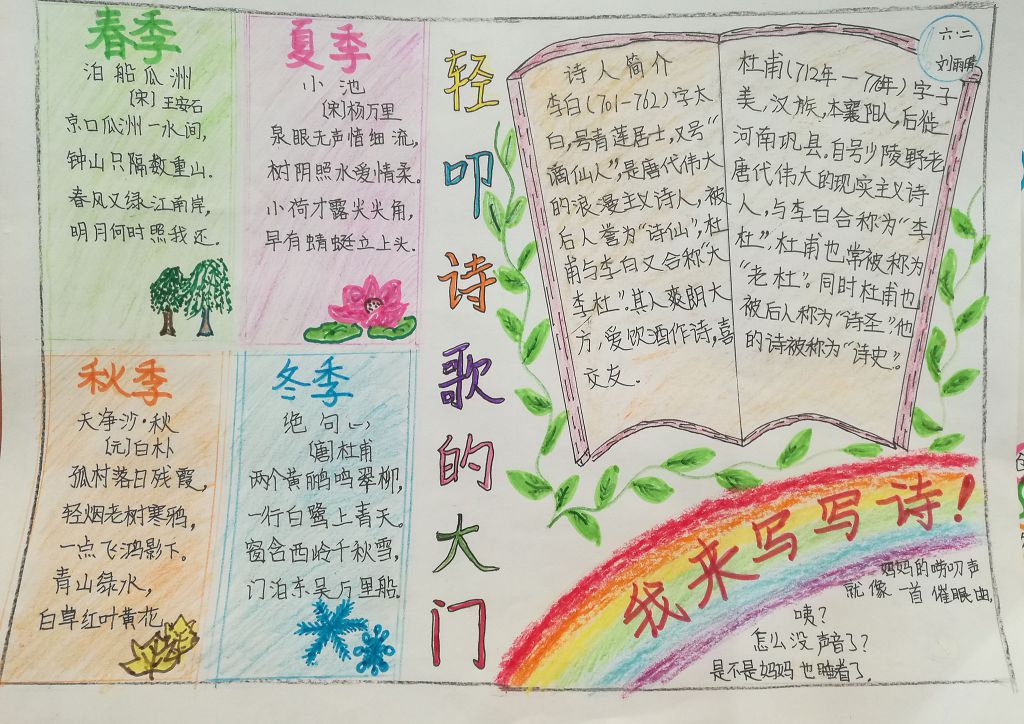 春季
泊船瓜洲
〔宋〕王安石
京口瓜洲一水间，
钟山只隔数重山.
春风又绿江南岸，
明月何时照我还.
夏季
小池
〔宋〕杨万里
泉眼无声惜细流，
树阴照水爱情柔.
小荷才露尖尖角，
早有蜻蜓立上头.
秋季
天净沙·秋
〔元〕白朴
孤村落日残霞，
轻烟老树寒鸦，
一点飞鸿影下。
青山绿水，
白草红叶黄花.
冬季
绝句(一)
〔唐〕杜甫
两个黄鹂鸣翠柳，
一行白鹭上青天。
窗含西岭千秋雪，
门泊东吴万里船.
轻叩诗歌的大门
诗人简介
李白(701-762)字太
白，号青莲居士，又号“
谪仙人”，是唐代伟大
的浪漫主义诗人，被
后人誉为“诗仙”，杜
甫与李白又合称“大
李杜”.其人爽朗大
方，爱饮酒作诗，喜
交友.
杜甫(712年—770年)字子
美，汉族，本襄阳人，后徙
河南巩县.自号少陵野老
唐代伟大的现实主义诗
人，与李白合称为“李
杜”，杜甫也常被称为
“老杜”。同时杜甫也
被后人称为“诗圣”，他
的诗被称为“诗史”。
六·二
刘雨
我来写写诗！
妈妈的唠叨声
就像一首催眠曲，
咦？
怎么没声音了？
是不是妈妈也睡着了.